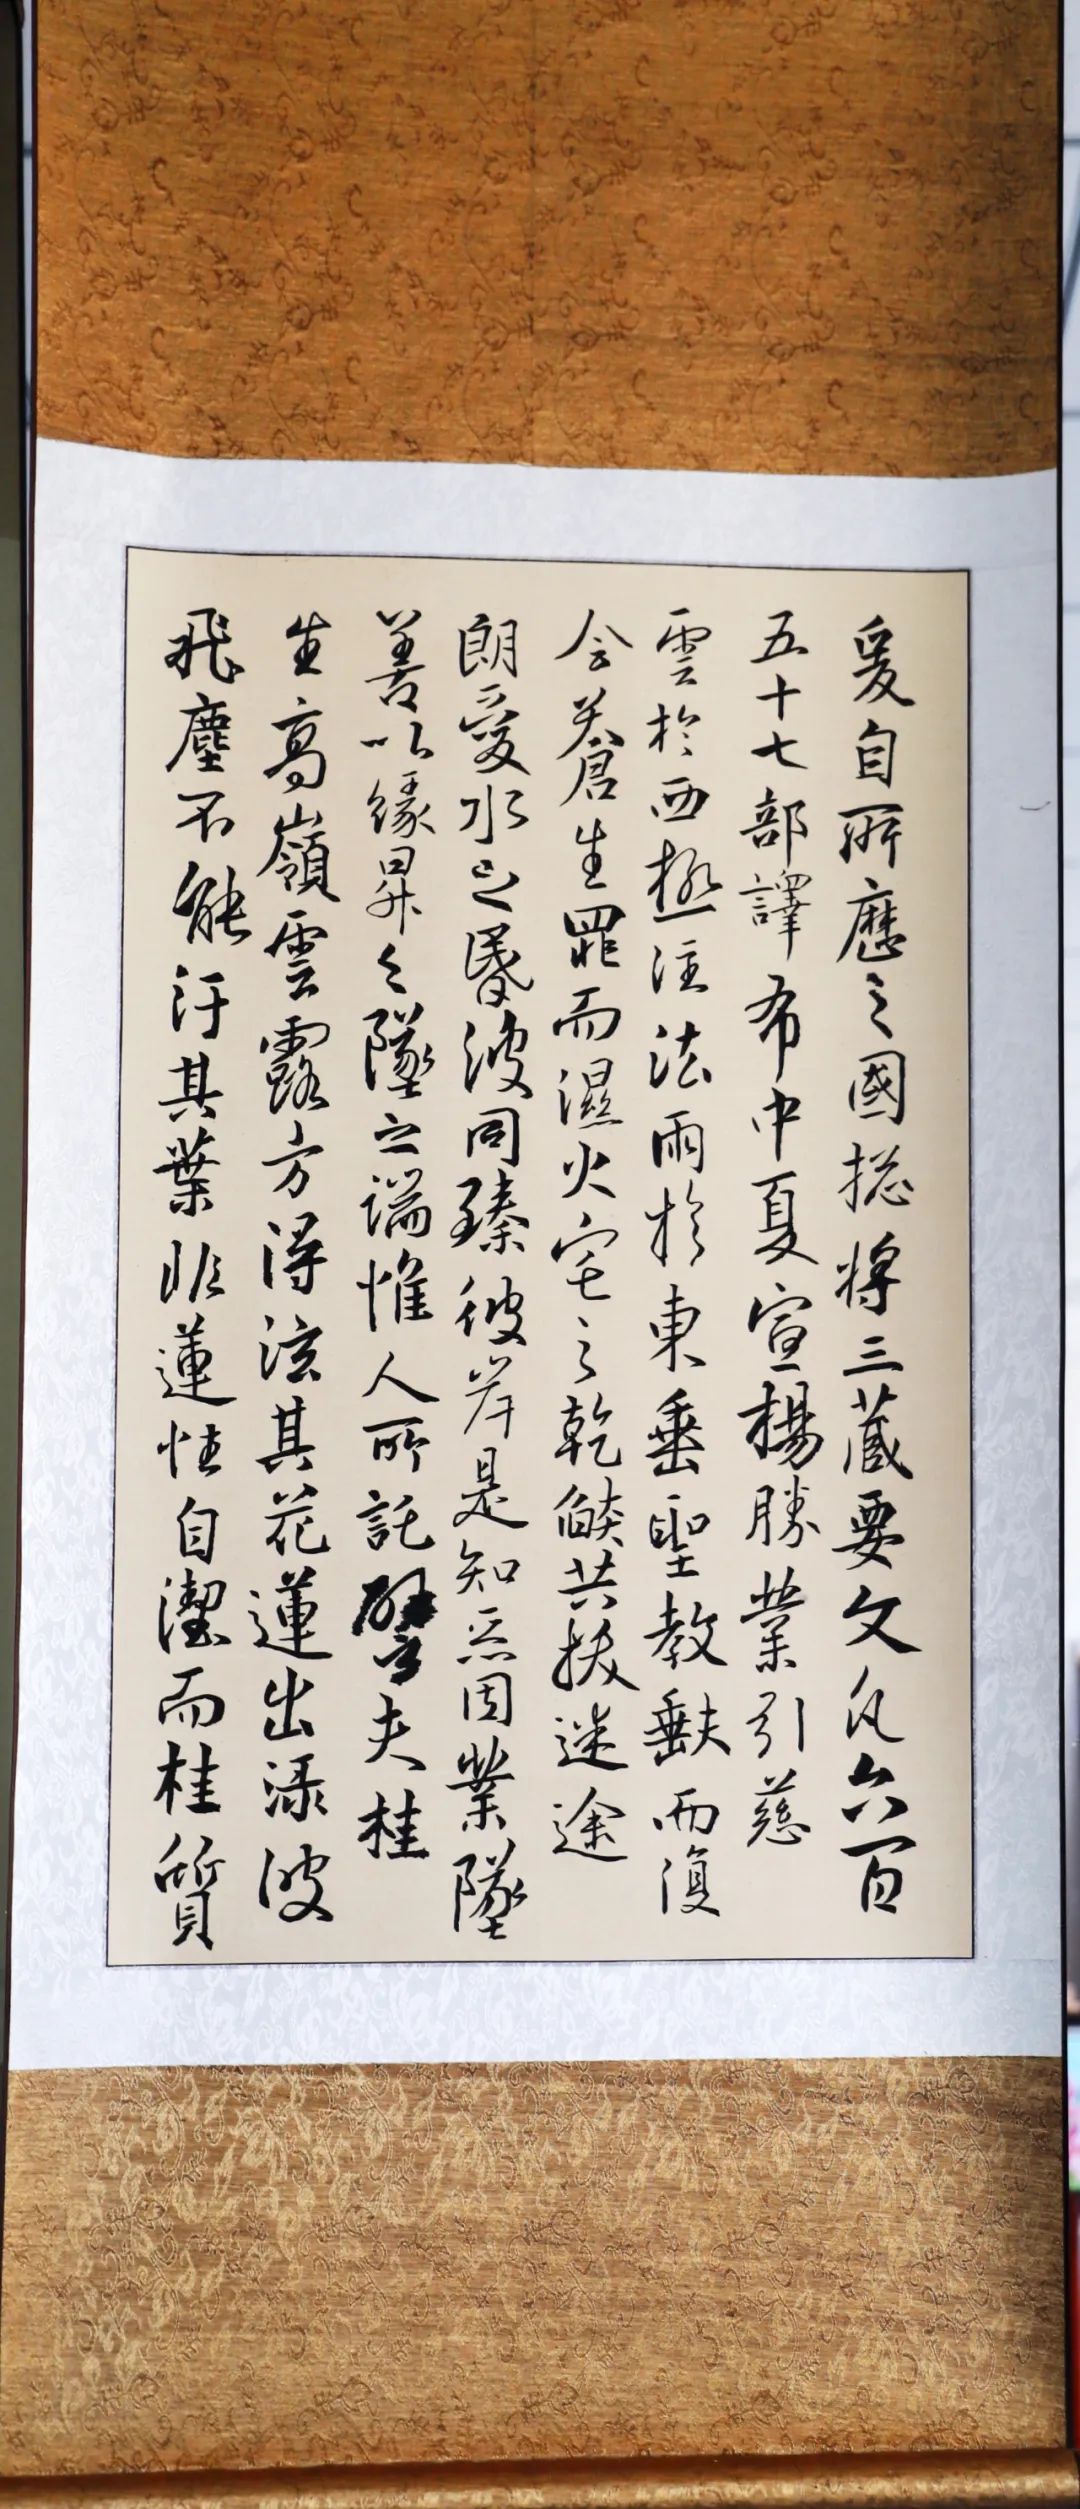 爰自所歷之國揔將三藏要文凡六百
五十七部譯布中夏宣楊勝業引慈
雲於西極注法雨於東垂聖教缺而復
全蒼生罪而
濕火宅之乾燄共拔迷途
朗愛水之昏波同臻彼岸是知惡因業墜
善以緣昇々墜之端惟人所託譬夫桂
生高嶺雲露方得泫其花蓮出淥波
飛塵不能汙其葉非蓮性自潔而桂質